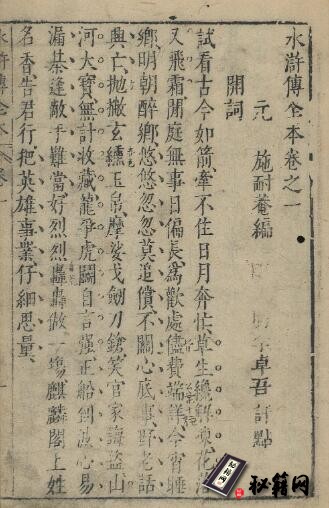 水滸傳全本卷之一
元 施耐菴編
卓吾評點
開詞
試看古今如箭牽不住日月奔忙草生纔花落
又飛霜閒庭無事日偏長爲歡處儘費端詳今宵睡
鄉明朝醉鄉悠悠忽忽莫追償不關心底事野老話
興亡拋撇玄纁玉帛摩娑戈劒刀鎗笑官家誨盜山
河大寶無計收藏龍爭虎鬪自言強正船到波心易
漏棊逢敵手難當好烈烈轟轟做一塲麒麟閣上姓
名香告君行把英雄事業仔細思量
水滸傳全本 卷一
秘籍网
秘籍网